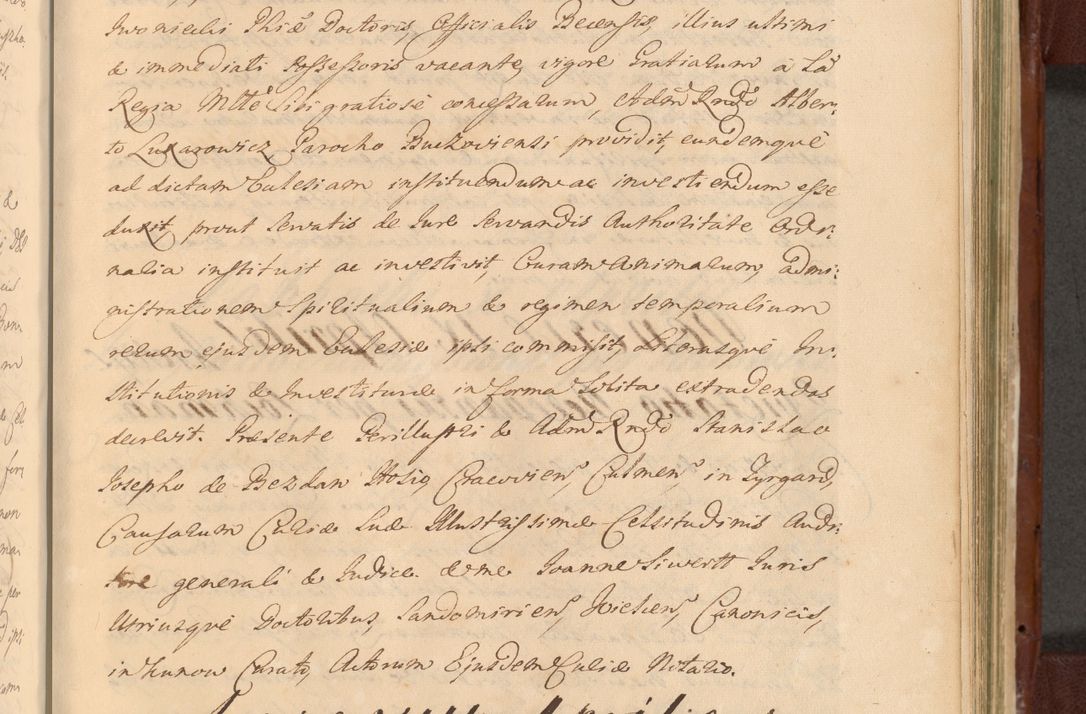 Iwonicki Phiæ Doctoris, Officialis Becensis, illius ultimi
& immediati Possessoris vacante, vigore Gratiarum à Sa
Regia Mtte Sibi gratiosè concessarum, Adm Rndo Alber-
to Lukarowicz Parocho Buckoviensi providit, eundemquè
ad dictam Ecclesiam instituendum ac investiendum esse
duxit, prout servatis de Iure servandis Authoritate Ordi-
naria instituit ac investivit, Curam Animarum, admi-
nistrationem Spiritualium & regimen temporalium
rerum ejusdem Ecclesiæ ipsi commisit, Litterasquè In-
stitutionis & Investituræ in forma Solita extradendas
decrevit. Præsente Perillustri & Adm Rndo Stanislao
Josepho de Bezdan Hosig, Cracovien, Culmen, in Zyrgard,
Causarum Curiæ Suæ Illustrissimæ Celsitudinis Audi-
tore generali & Iudice. & me Ioanne Siwertt Iuris
Utriusquè Doctoribus, Sandomirien, Kielcen, Canonicis,
in Kunow Curato, Actorum Ejusdem Curiæ Notario.